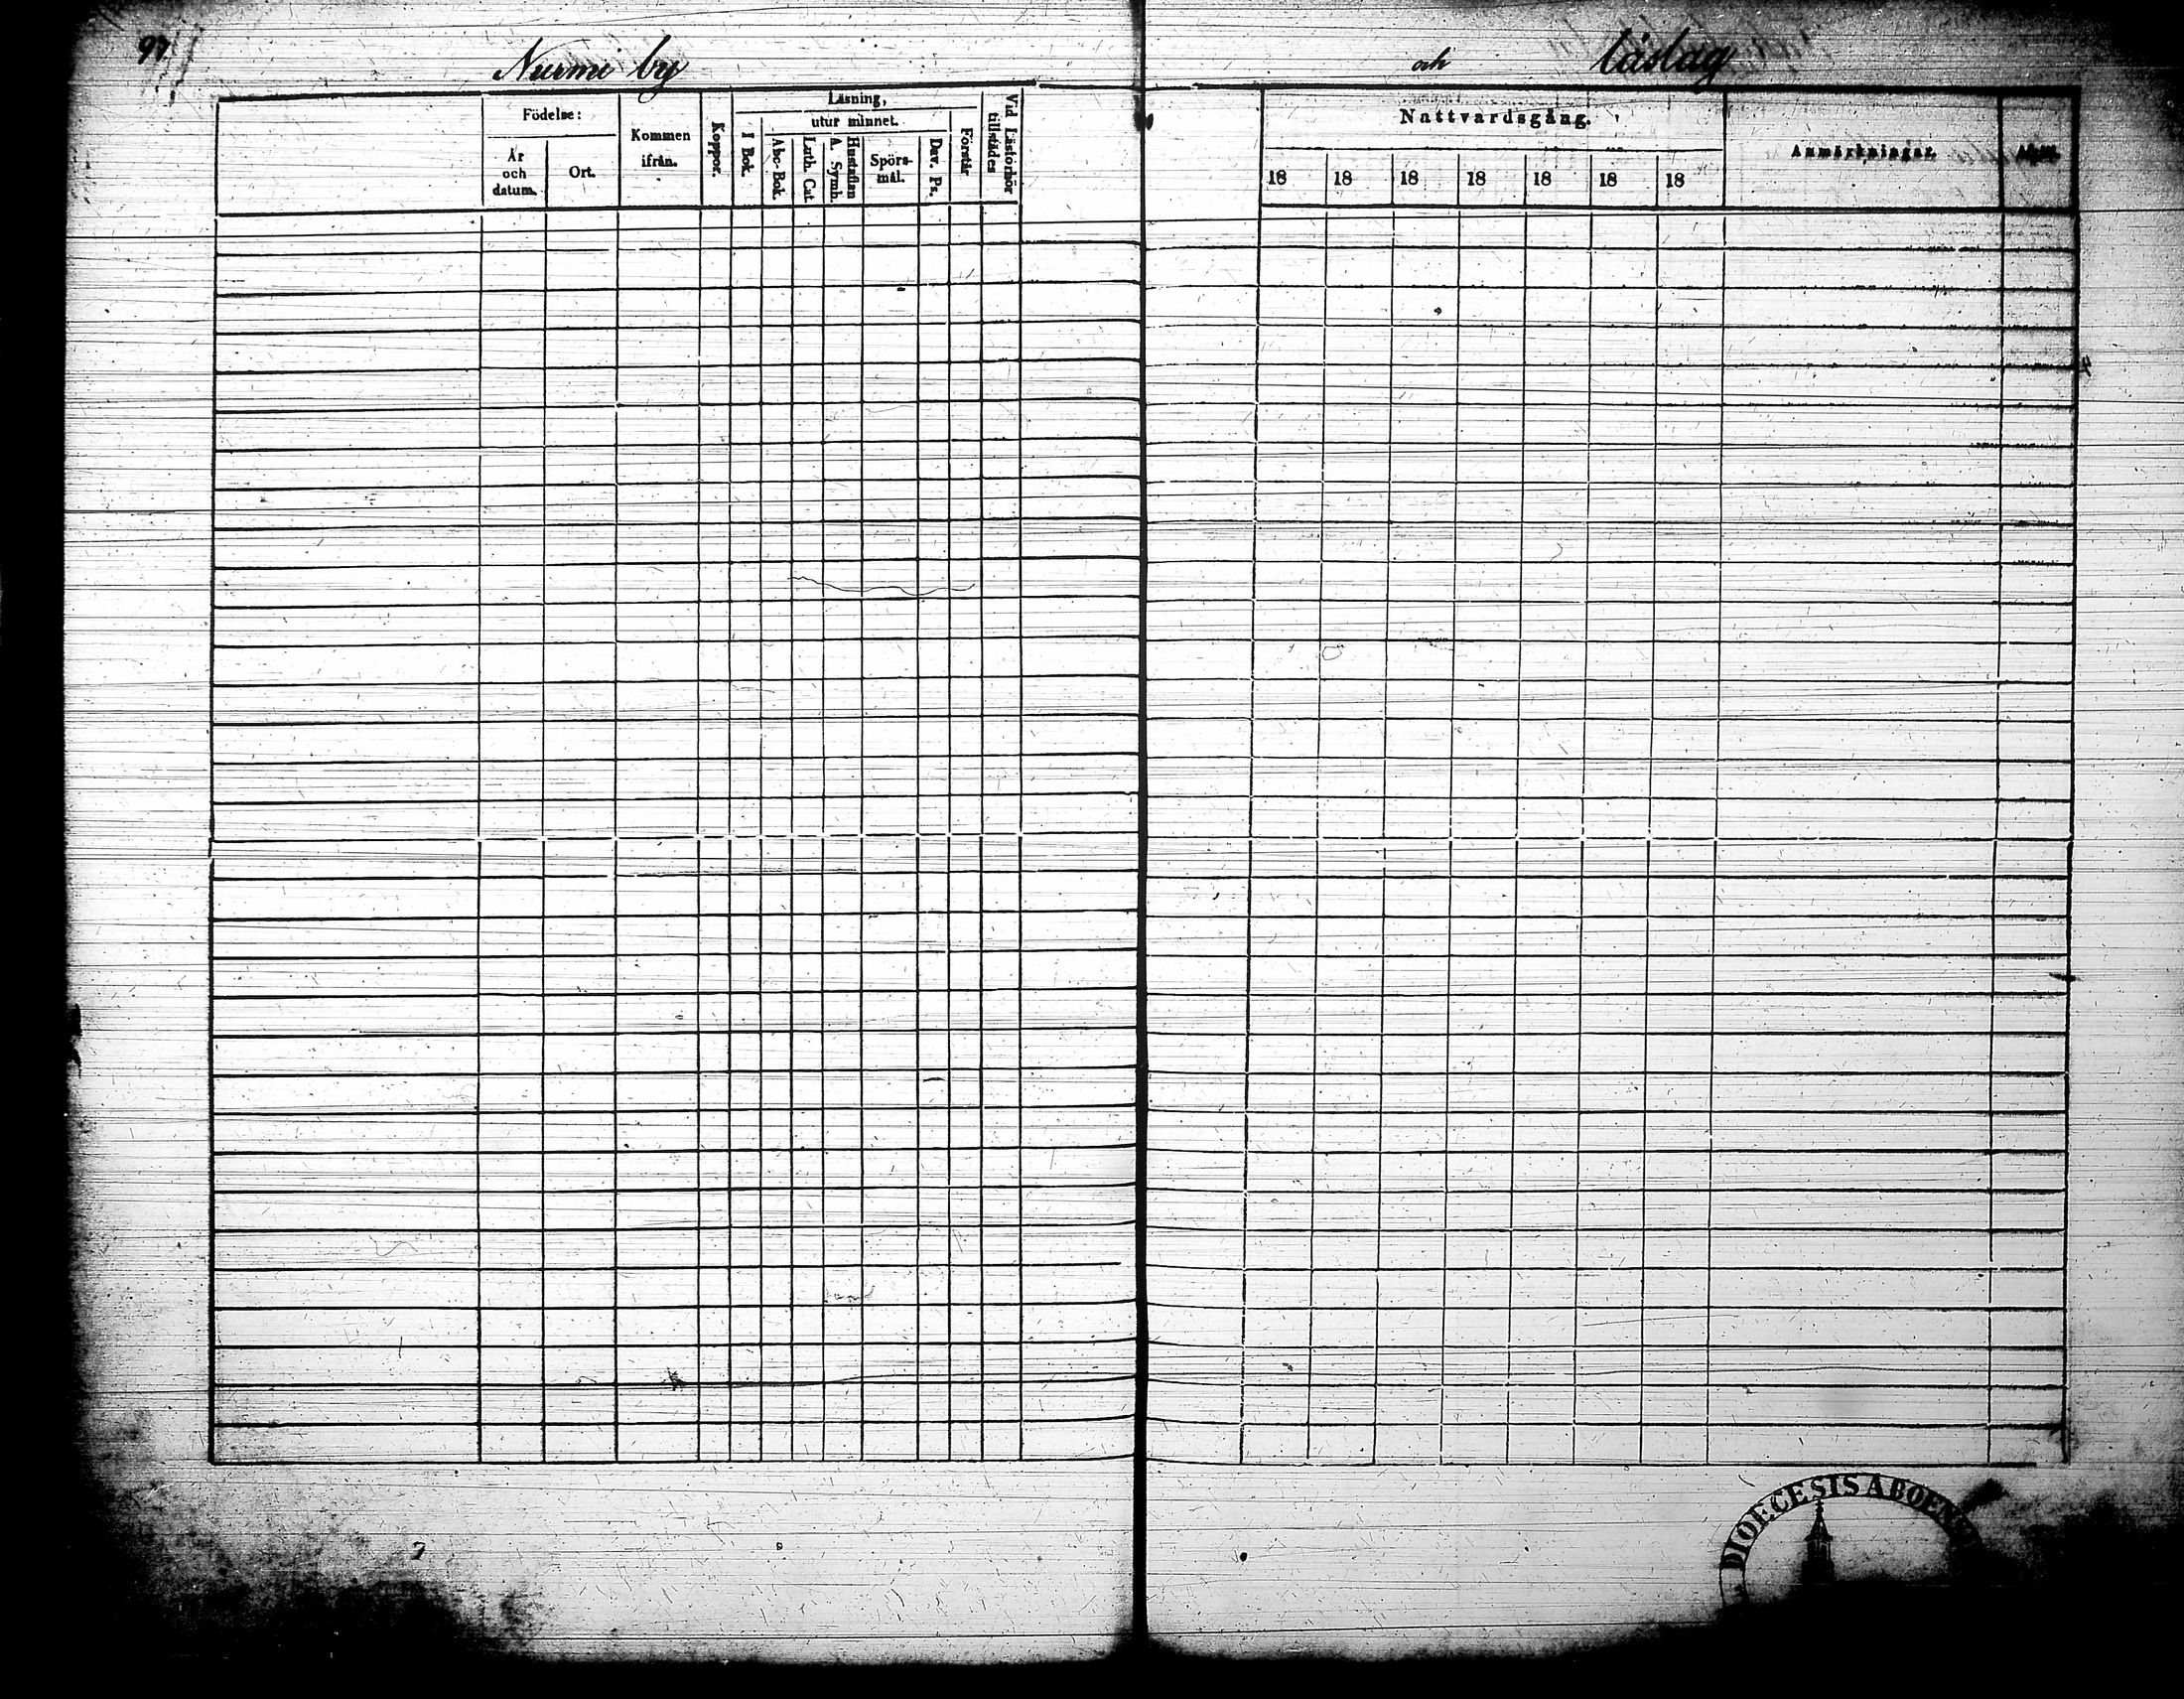 97
Nurmi by och läslag
Födelse:
År
och
datum.
Ort.
Kommen
ifrån.
Koppor.
Läsning,
I Bok.
utur minnet.
Abc-Bok.
Luth. Cat.
Hustaflan
A. Symb.
Spörs-
mål.
Dav. Ps.
Förstår
Vid Läsförhör
tillstädes
Nattvardsgång.
18 18 18 18 18 18 18
Anmärkningar.
DIOECESIS ABOENS